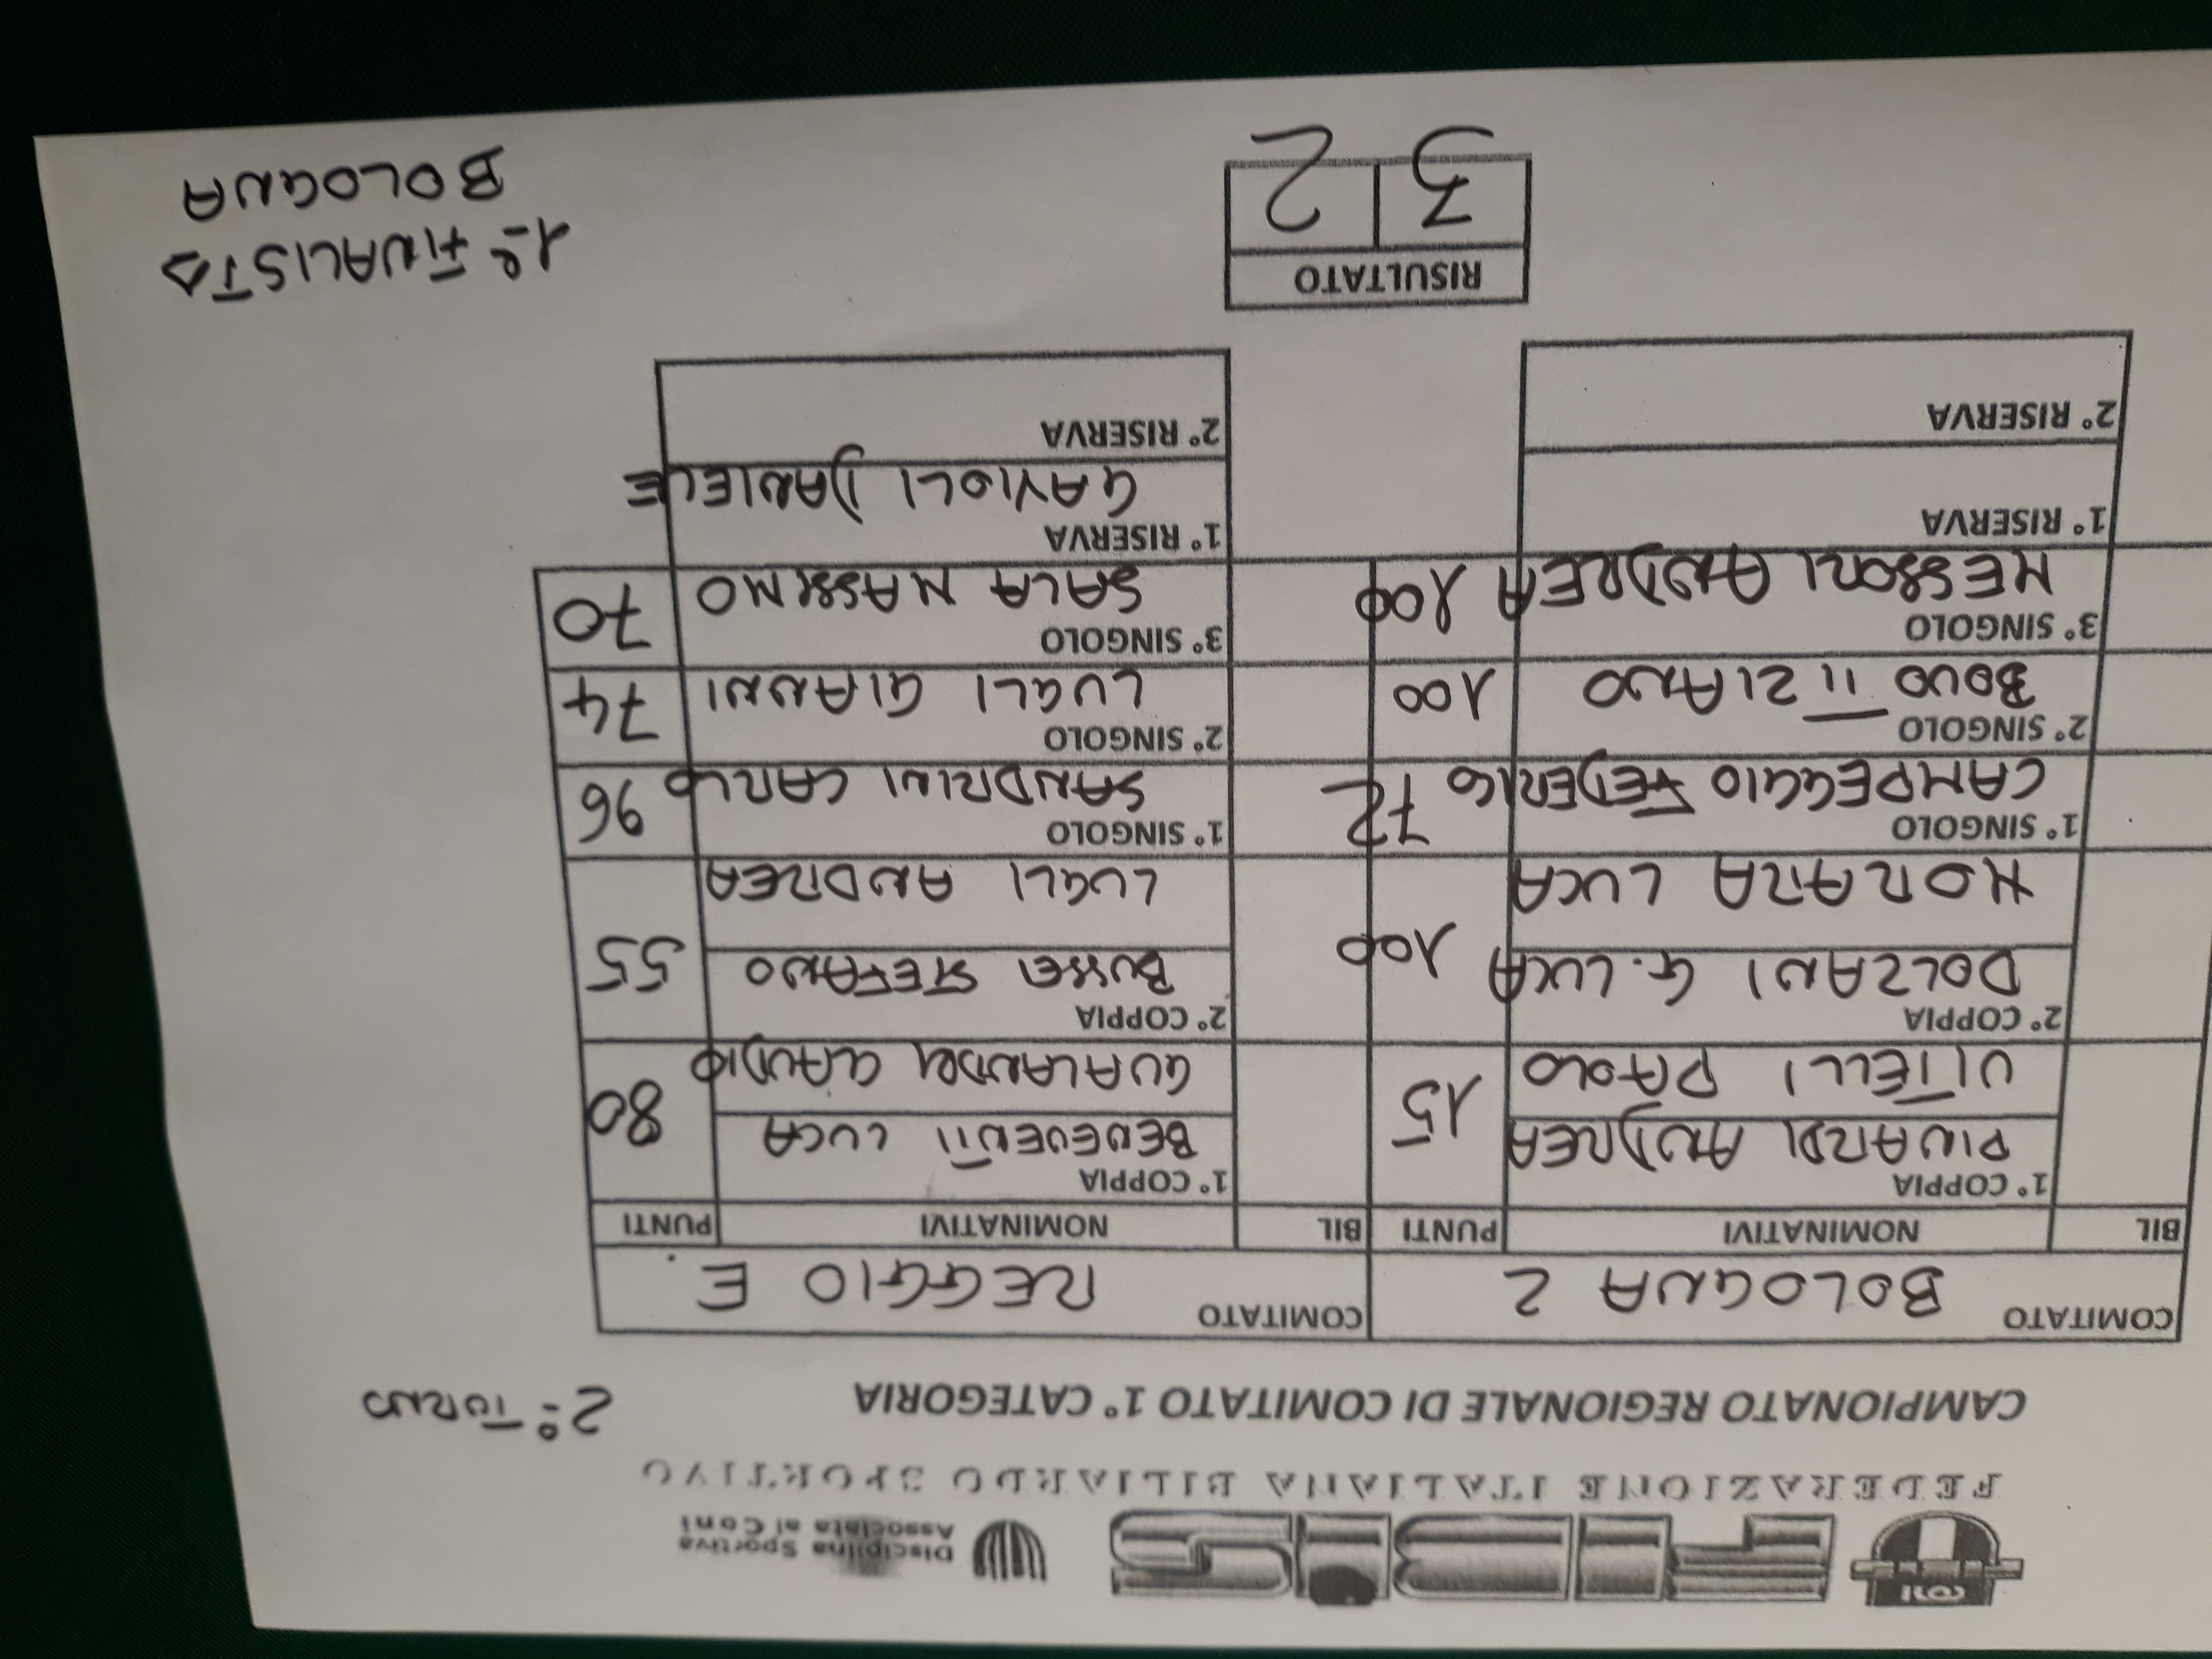 CONI
FIBiS
Disciplina Sportiva
Associata al Coni
FEDERAZIONE ITALIANA BILIARDO SPORTIVO
CAMPIONATO REGIONALE DI COMITATO 1° CATEGORIA 2° TURNO
COMITATO BOLOGNA 2 COMITATO REGGIO E.
BIL NOMINATIVI PUNTI BIL NOMINATIVI PUNTI
1° COPPIA 1° COPPIA
PINARDI ANDREA 15 BENEVENTI LUCA 80
VITELLI PAOLO GUALANDRI CLAUDIO
2° COPPIA 2° COPPIA
DOLZANI G. LUCA 100 BUSSEI STEFANO 55
MORARA LUCA LUGLI ANDREA
1° SINGOLO 1° SINGOLO
CAMPEGGIO FEDERICO 72 SANDRINI CARLO 96
2° SINGOLO 2° SINGOLO
BOVO TIZIANO 100 LUGLI GIANNI 74
3° SINGOLO 3° SINGOLO
MESSORI ANDREA 100 SALA MASSIMO 70
1° RISERVA 1° RISERVA
GAVIOLI DANIELE
2° RISERVA 2° RISERVA
RISULTATO
3 2
3 2
1° FINALISTA
BOLOGNA